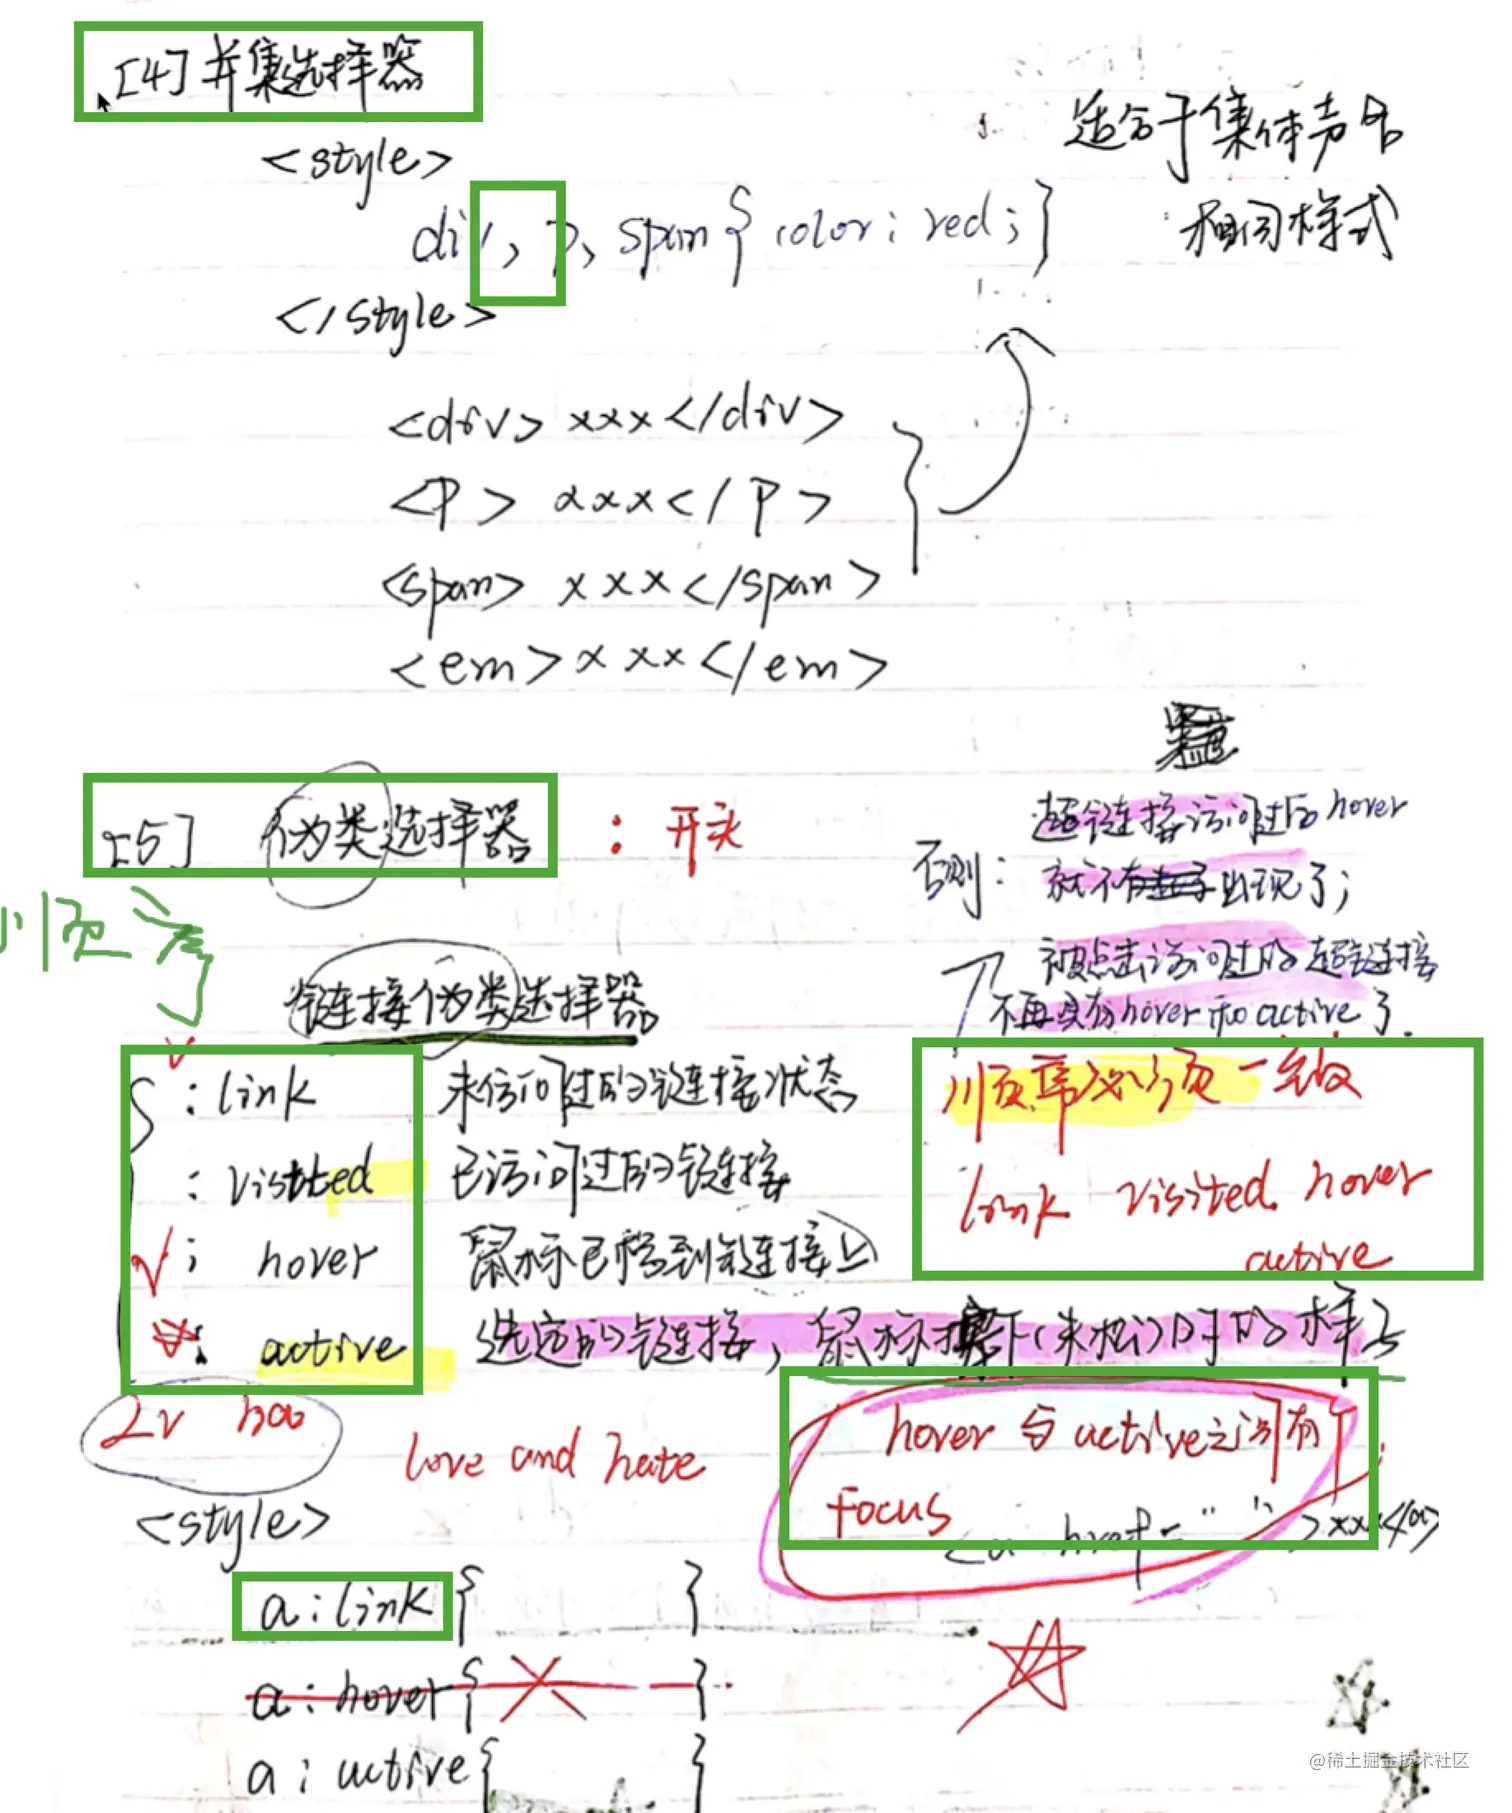 [4] 并集选择器
<style>
div, p, span { color: red; }
</style>
适合于集体声明
相同样式
<div> xxx </div>
<P> xxx </P>
<span> xxx </span>
<em> xxx </em>
[5] 伪类选择器 : 开头
否则:
超链接访问过后hover
就不有出现了;
被点击访问过的超链接
不再具有hover和active了.
顺序
链接伪类选择器
: link 未访问过的链接状态
: visitted 已访问过的链接
: hover 鼠标已移到链接上
: active 选定的链接, 鼠标按下(未松)时的样式
顺序必须一致
link visited hover
active
Lv ha
love and hate
hover 与 active 之间有
focus
<a href=" "> xxx </a>
<style>
a: link { }
a: hover { }
a: active { }
@稀土掘金技术社区